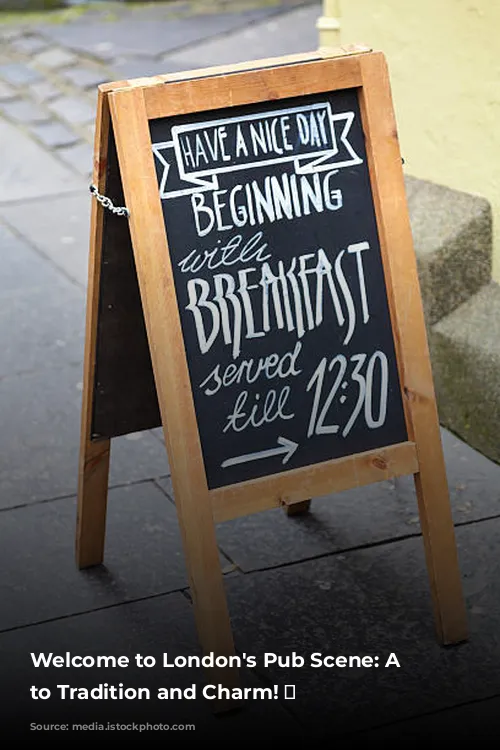 HAVE A NICE DAY
BEGINNING
with
BREAKFAST
served
till 12:30
Welcome to London's Pub Scene: A
to Tradition and Charm!
Source: media.istockphoto.com